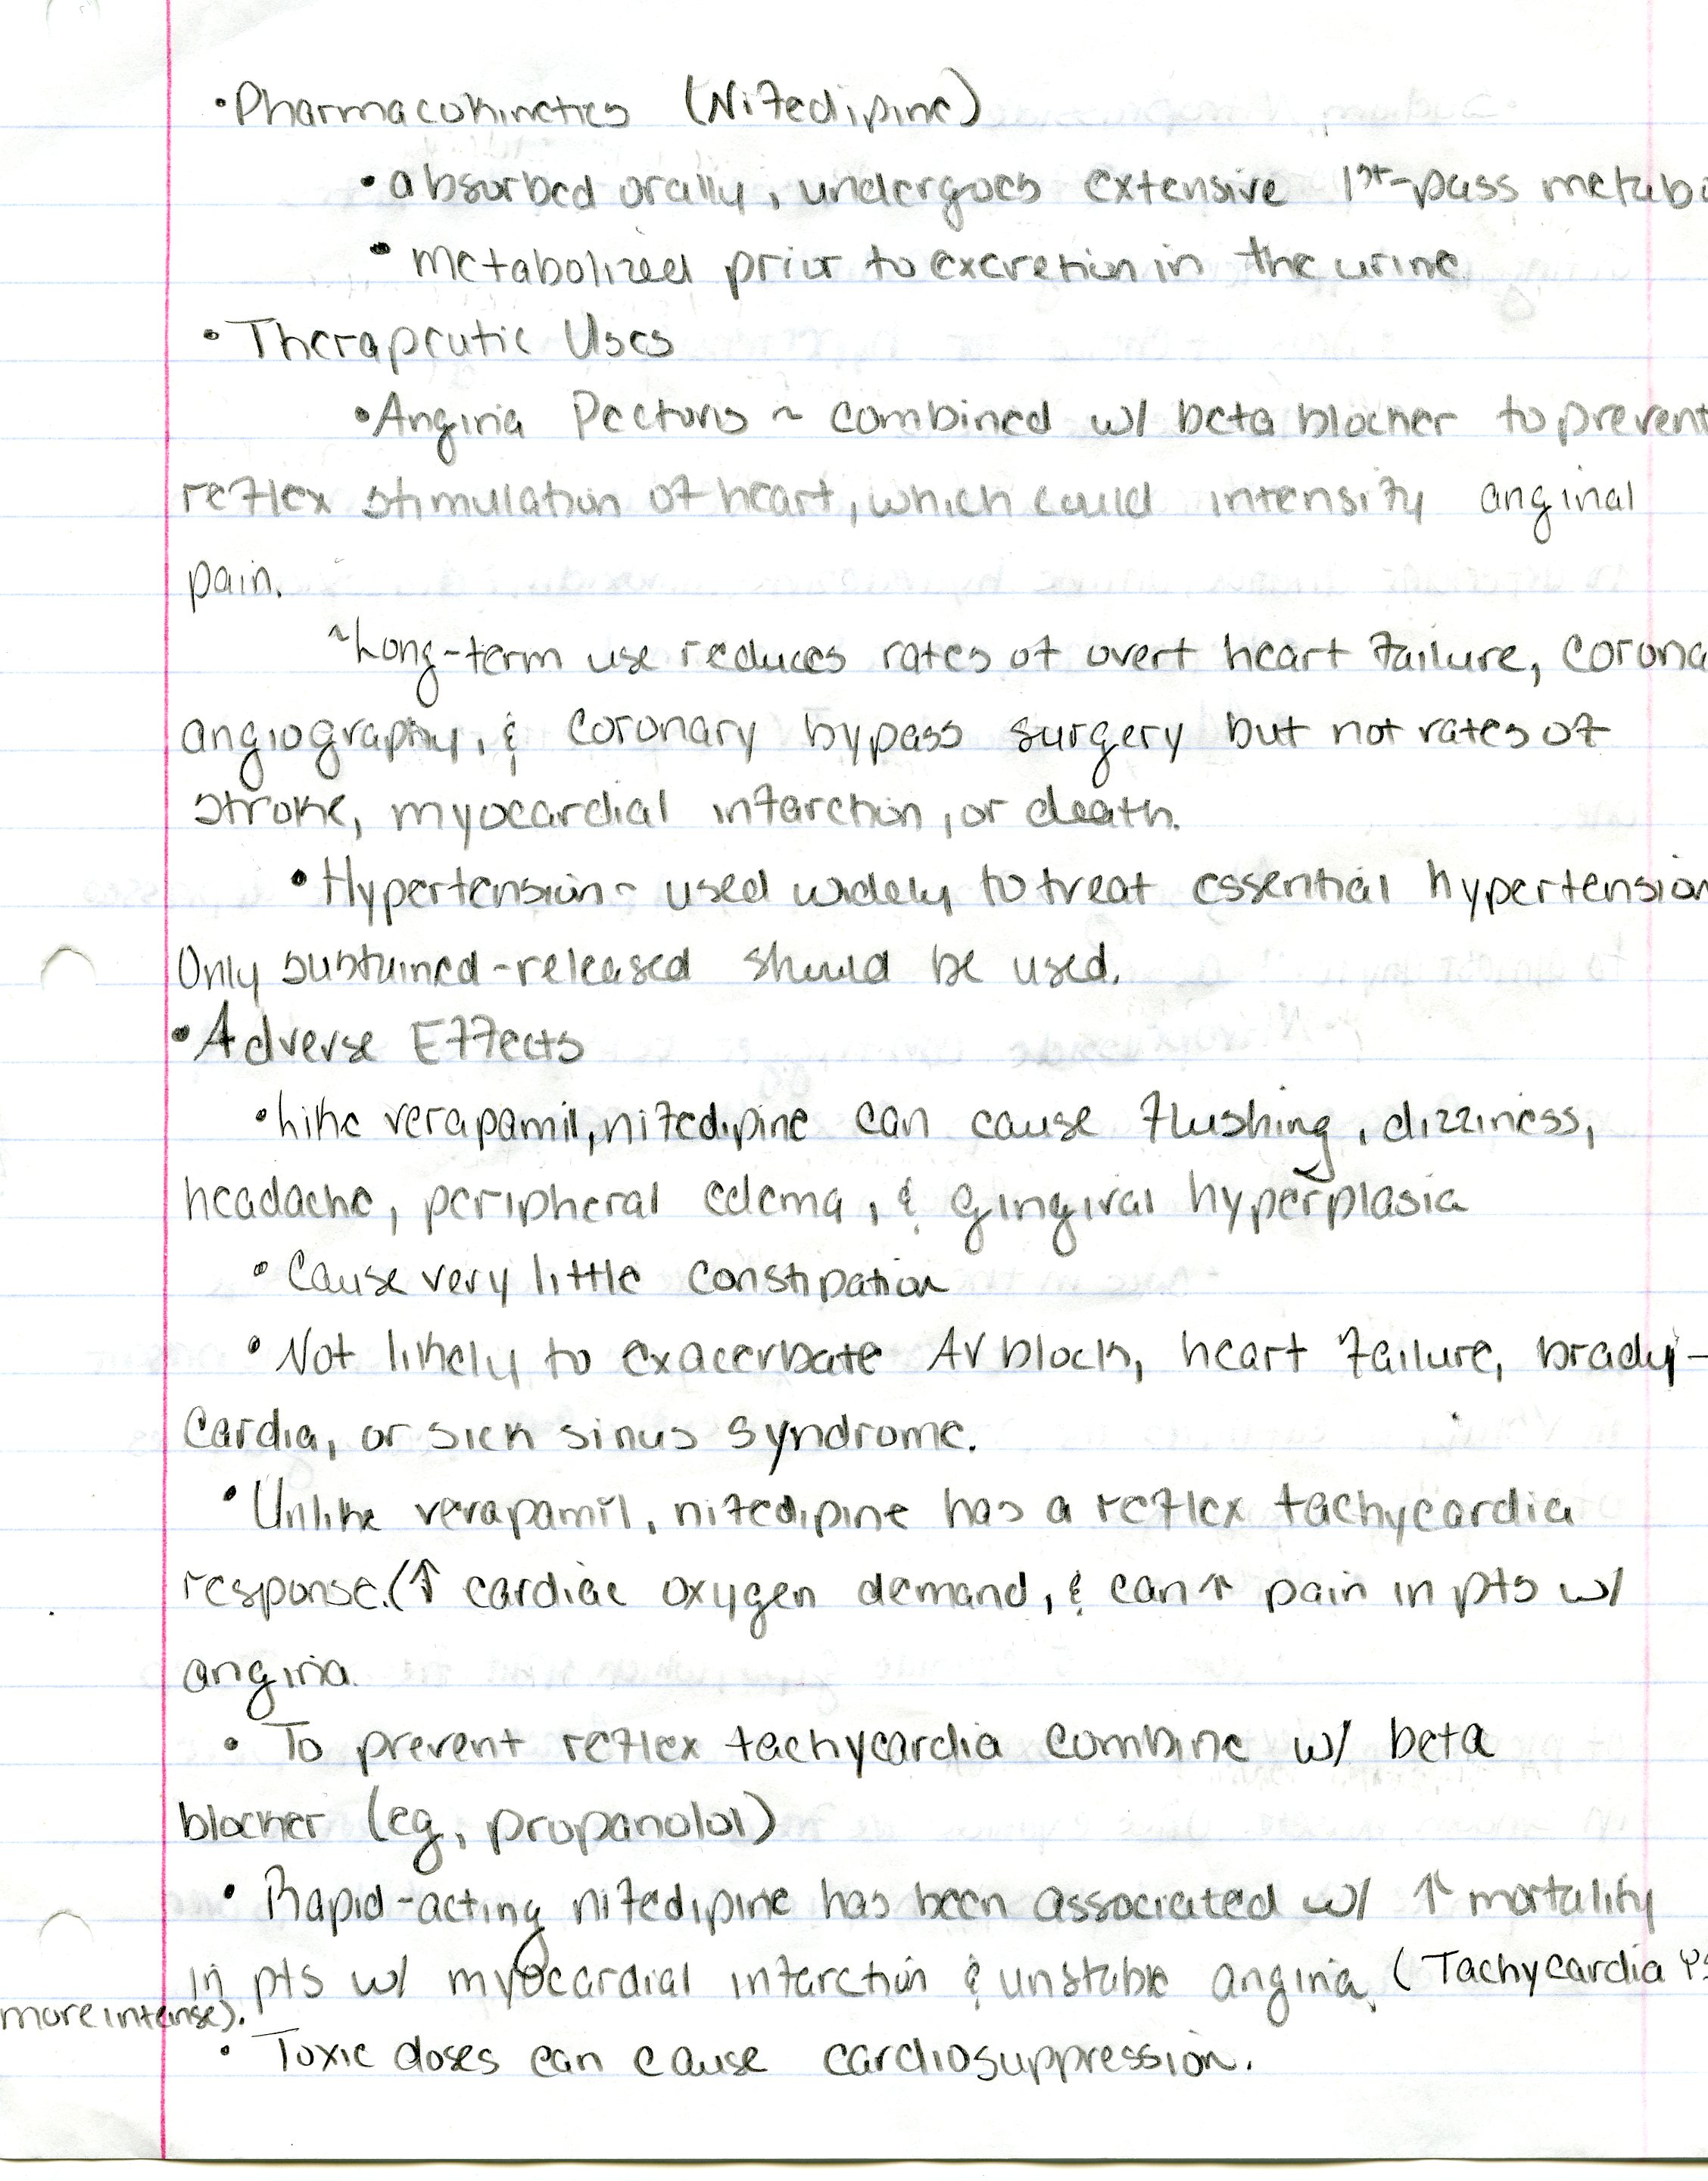 •Pharmacokinetics (Nifedipine)
•absorbed orally, undergoes extensive 1st-pass metabo
• metabolized prior to excretion in the urine.
• Therapeutic Uses
•Angina Pectoris ~ combined w/ beta blocker to prevent
reflex stimulation of heart, which could intensify anginal
pain.
~Long-term use reduces rates of overt heart failure, corona
angiography, & coronary bypass surgery but not rates of
stroke, myocardial infarction, or death.
• Hypertension~ used widely to treat essential hypertension
Only sustained-released should be used.
•Adverse Effects
•Like verapamil, nifedipine can cause flushing, dizziness,
headache, peripheral edema, & gingival hyperplasia
• Cause very little constipation
• Not likely to exacerbate AV block, heart failure, brady-
cardia, or sick sinus syndrome.
• Unlike verapamil, nifedipine has a reflex tachycardia
response.(↑ cardiac oxygen demand, & can ↑ pain in pts w/
angina.
• To prevent reflex tachycardia combine w/ beta
blocker (eg, propanolol)
• Rapid-acting nifedipine has been associated w/ ↑ mortality
in pts w/ myocardial infarction & unstable angina. (Tachycardia
more intense).
• Toxic doses can cause cardiosuppression.